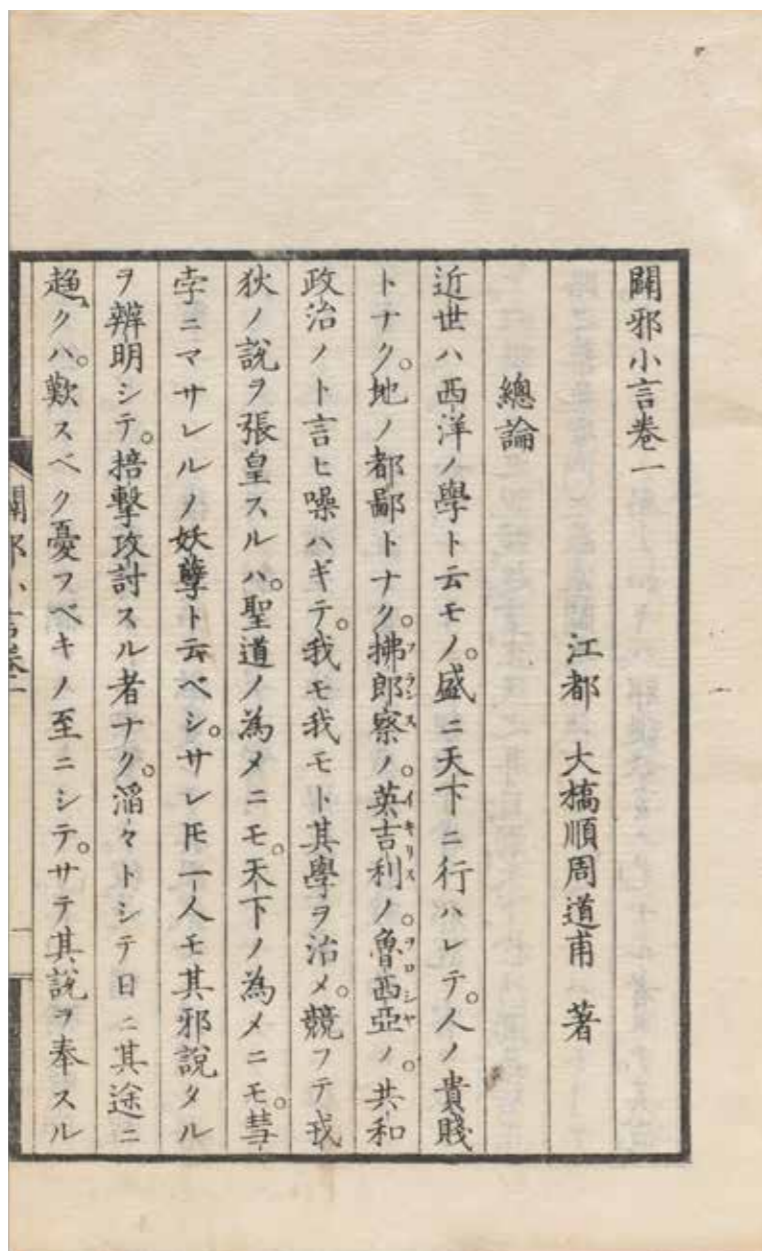 闢邪小言卷一
江都 大橋順周道甫 著
總論
近世ハ西洋ノ學ト云モノ。盛ニ天下ニ行ハレテ。人ノ貴賤
トナク。地ノ都鄙トナク。拂郎察ノ。英吉利ノ。魯西亞ノ。共和
フランス イキリス ヲロシヤ
政治ノト言ヒ噪ハギテ。我モ我モト其學ヲ治メ。競フテ戎
狄ノ說ヲ張皇スルハ。聖道ノ為メニモ。天下ノ為メニモ。彗
孛ニマサレルノ妖孽ト云ベシ。サレ𪜈一人モ其邪說タル
ヲ辨明シテ。掊擊攻討スル者ナク。滔々トシテ日ニ其途ニ
趨クハ。歎スベク憂フベキノ至ニシテ。サテ其說ヲ奉スル
闢邪小言卷一
一